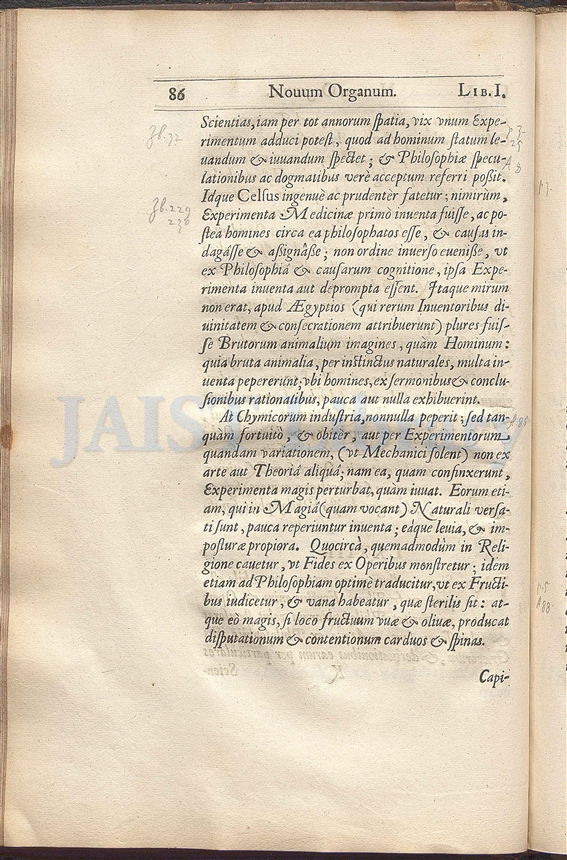 86 Nouum Organum. LIB. I.
Scientias, iam per tot annorum spatia, vix vnum Expe-
rimentum adduci potest, quod ad hominum statum le-
uandum & iuuandum spectet; & Philosophiæ specu-
lationibus ac dogmatibus verè acceptum referri possit.
Idque Celsus ingenuè ac prudentèr fatetur; nimirùm,
Experimenta Medicinæ primò inuenta fuisse, ac po-
stea homines circa ea philosophatos esse, & causas in-
dagâsse & assignâsse; non ordine inuerso eueniße, vt
ex Philosophiâ & causarum cognitione, ipsa Expe-
rimenta inuenta aut deprompta essent. Itaque mirum
non erat, apud Ægyptios (qui rerum Inuentoribus di-
uinitatem & consecrationem attribuerunt) plures fuis-
se Brutorum animalium imagines, quàm Hominum:
quia bruta animalia, per instinctus naturales, multa in-
uenta pepererunt; vbi homines, ex sermonibus & conclu-
sionibus rationalibus, pauca aut nulla exhibuerint.
At Chymicorum industria, nonnulla peperit; sed tan-
quàm fortuitò, & obitèr, aut per Experimentorum
quandam variationem, (vt Mechanici solent) non ex
arte aut Theoriâ aliquâ; nam ea, quam confinxerunt,
Experimenta magis perturbat, quàm iuuat. Eorum eti-
am, qui in Magiâ (quam vocant) Naturali versa-
ti sunt, pauca reperiuntur inuenta; eáque leuia, & im-
posturæ propiora. Quocircà, quemadmodùm in Reli-
gione cauetur, vt Fides ex Operibus monstretur; idem
etiam ad Philosophiam optimè traducitur, vt ex Fructi-
bus iudicetur, & vana habeatur, quæ sterilis sit: at-
que eò magis, si loco fructuum vuæ & oliuæ, producat
disputationum & contentionum carduos & spinas.
Capi-